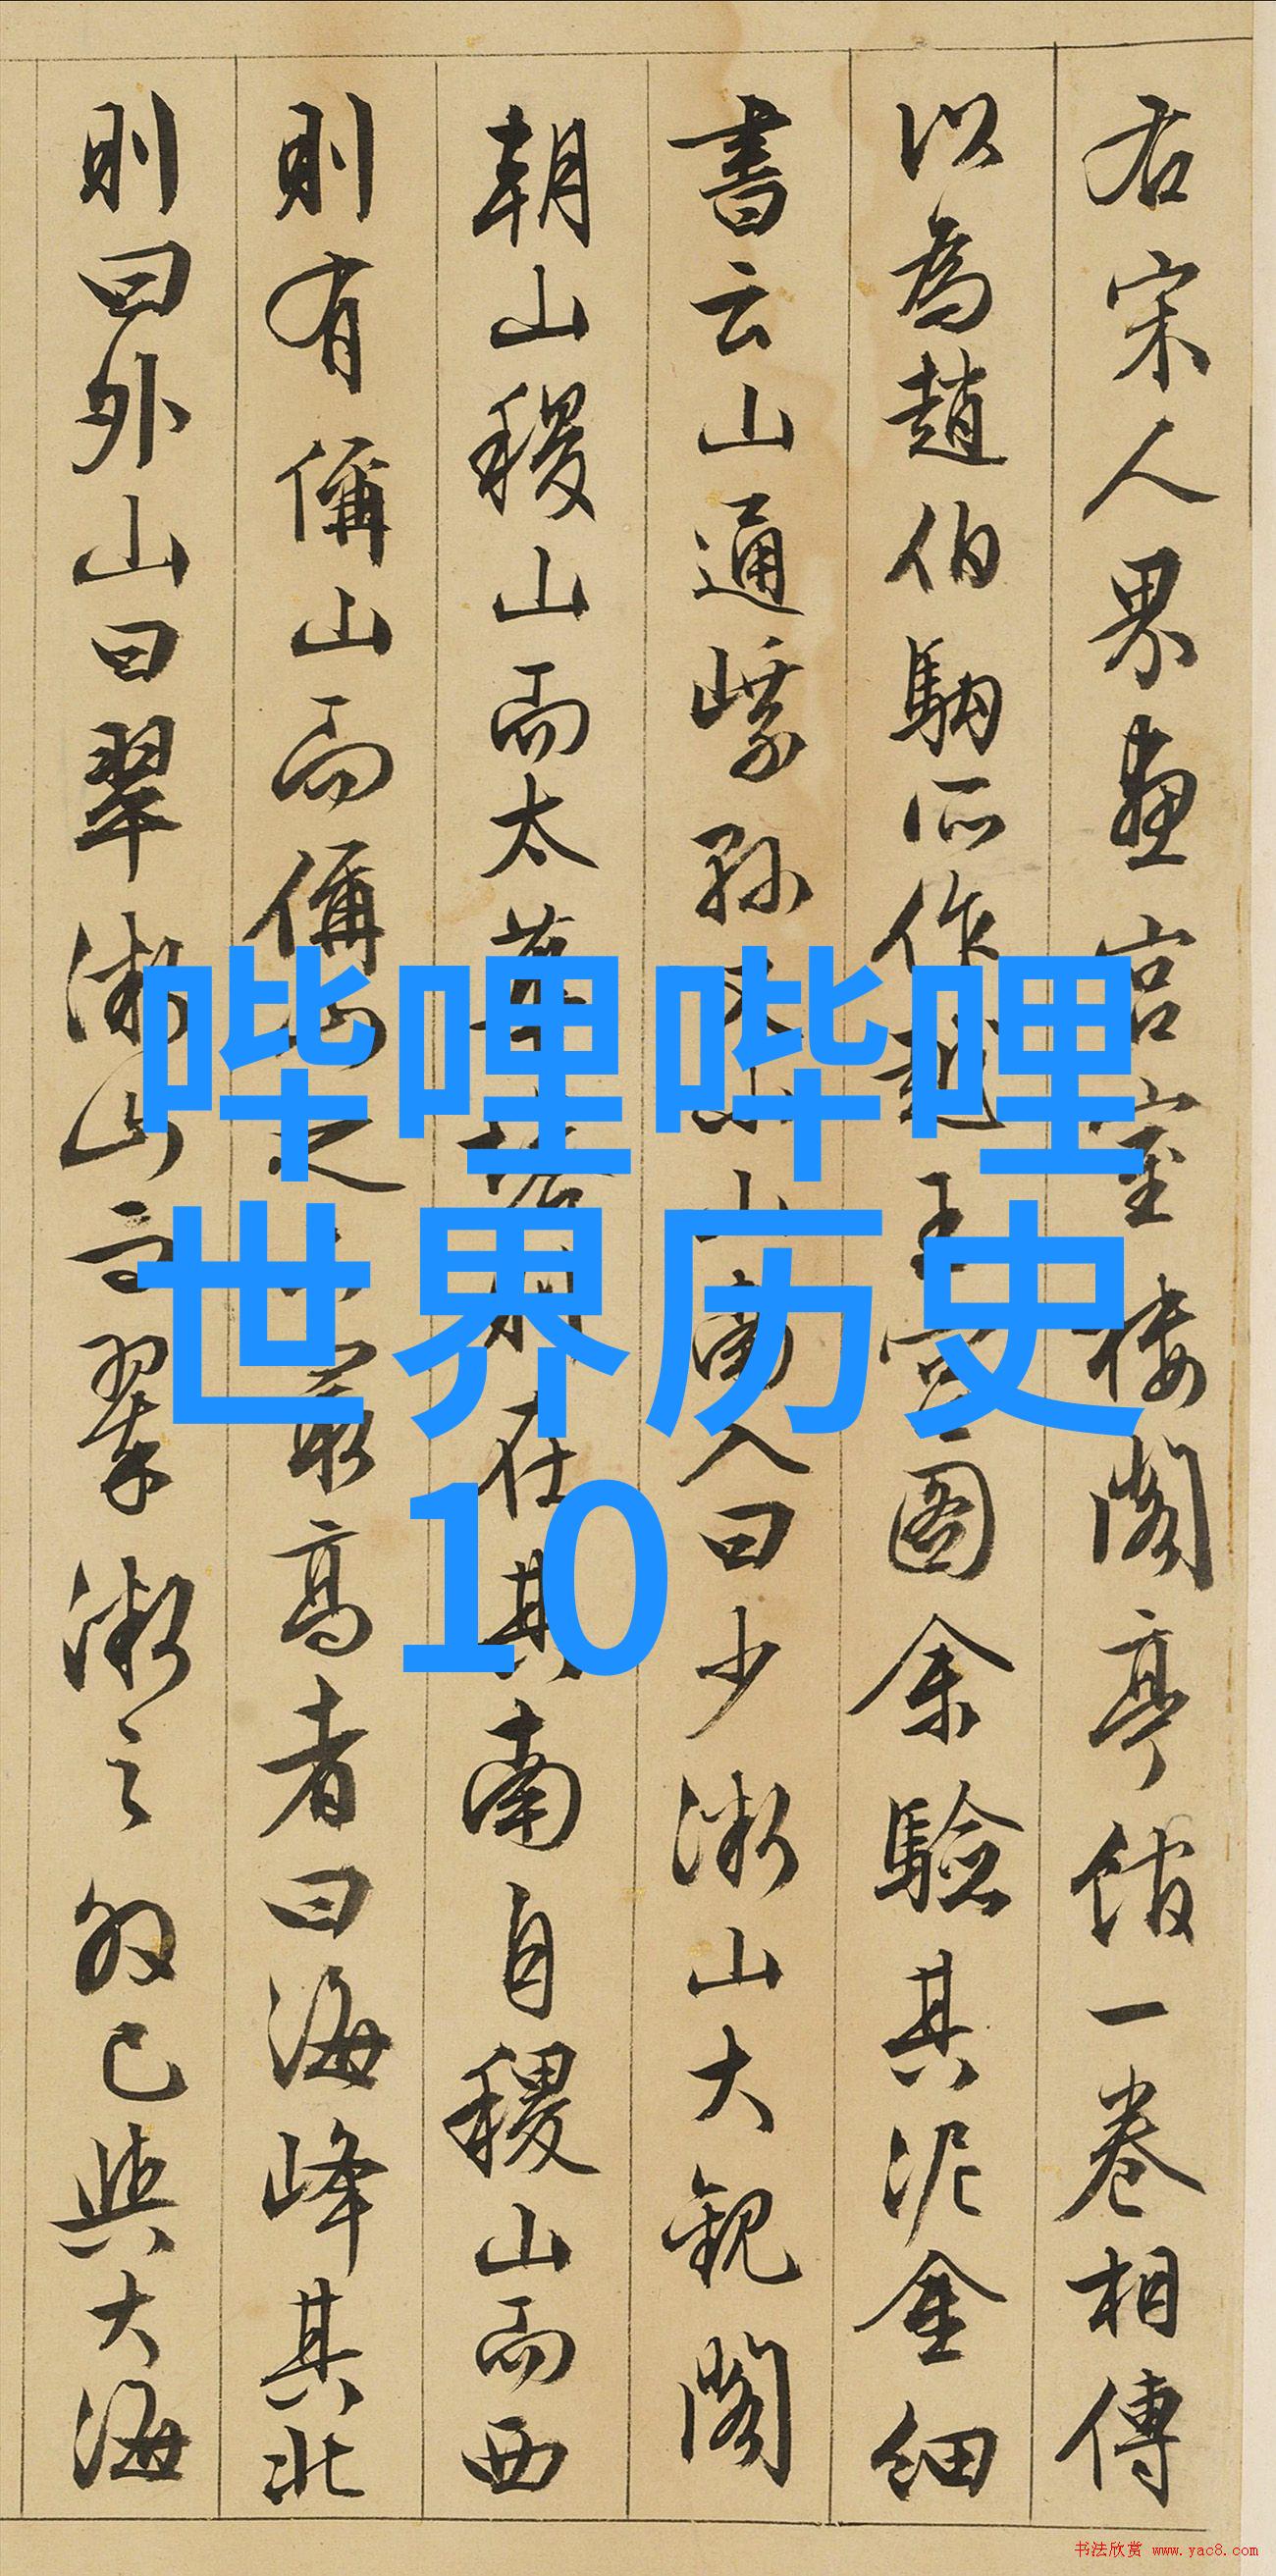 右宋人界畫宮室樓閣亭館一卷相傳
以為趙伯駒所作越王宮圖余驗其泥金細
書云山通
山南入曰少潄山大觀閣
朝山稷山山而太
在其南自稷山而西
則有偁山而偁
最高者曰海峰其北
則曰外山曰翠潄山之已與大海
哔哩哔哩
世界历史
10
书法欣赏 www.yac8.com